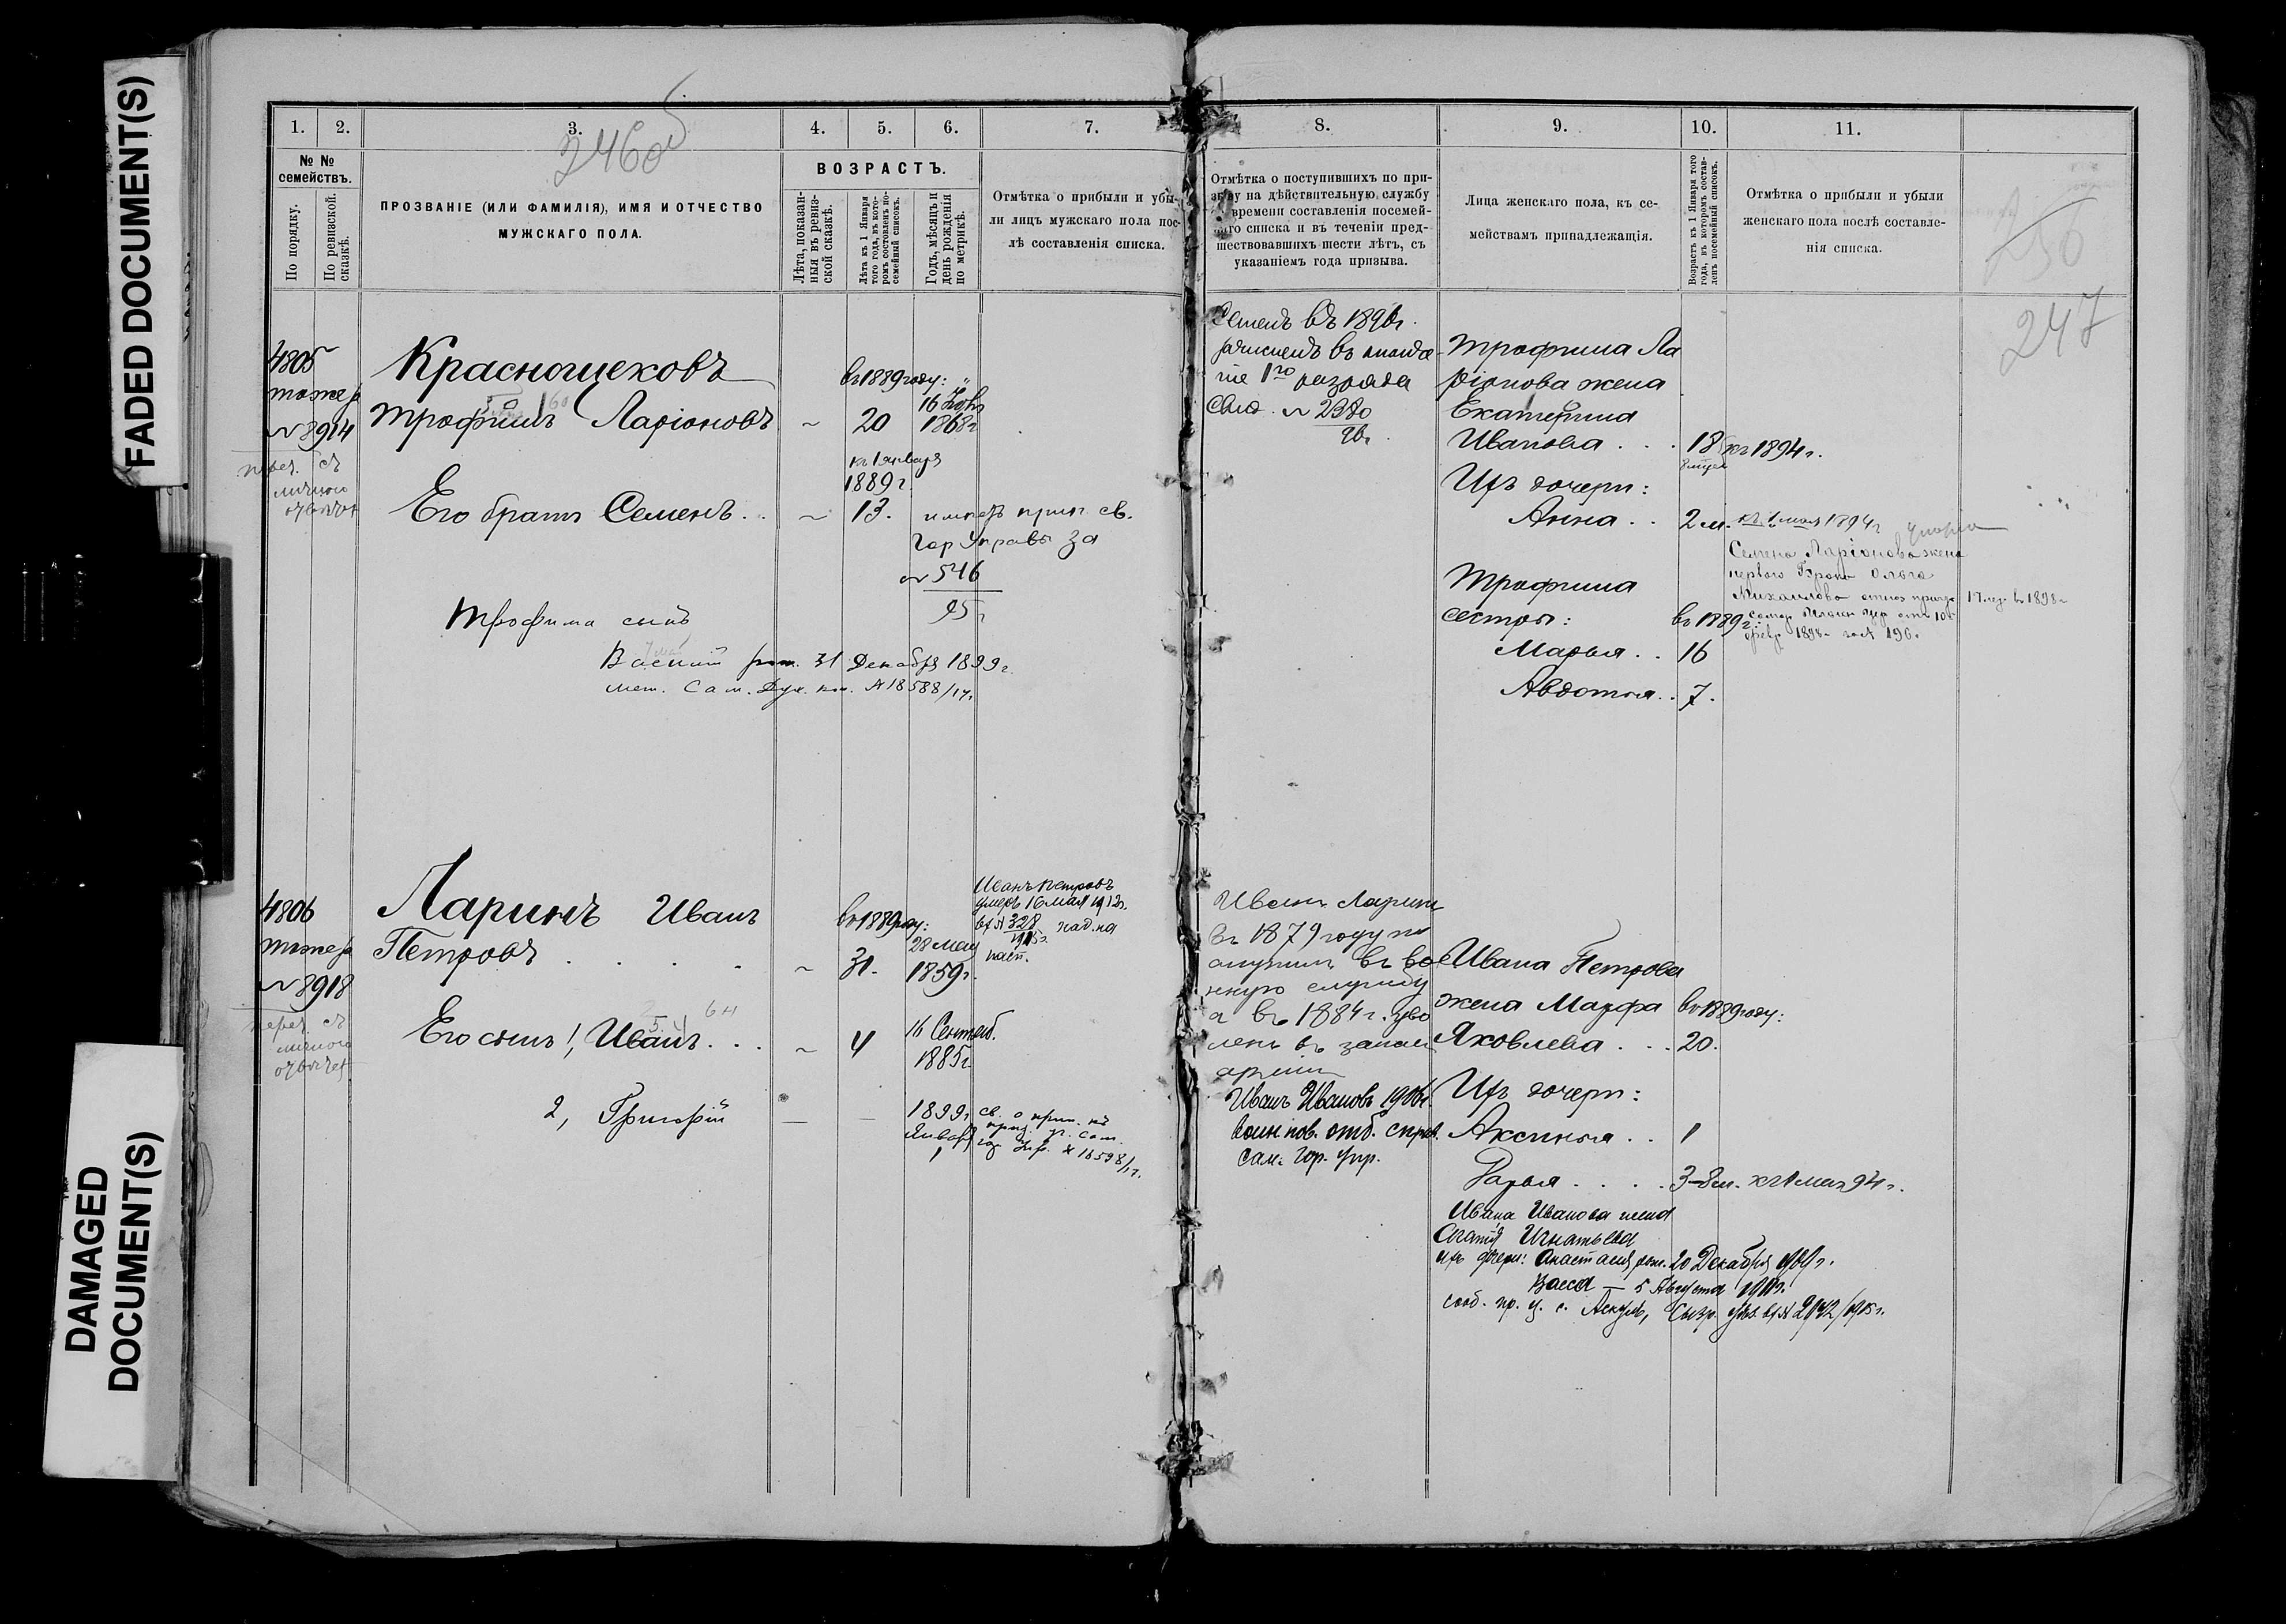 FADED DOCUMENT(S)
DAMAGED
DOCUMENT(S)
246об
1. 2. 3. 4. 5. 6. 7.
№ №
семействъ.
По порядку.
По ревизской
сказкѣ.
ПРОЗВАНІЕ (ИЛИ ФАМИЛІЯ), ИМЯ И ОТЧЕСТВО
МУЖСКАГО ПОЛА.
ВОЗРАСТЪ.
Лѣта, показан-
ныя въ ревиз-
ской сказкѣ.
Лѣта къ 1 Января
того года, въ кото-
ромъ составленъ по-
семейный списокъ.
Годъ, мѣсяцъ и
день рожденія
по метрикѣ.
Отмѣтка о прибыли и убы-
ли лицъ мужскаго пола пос-
лѣ составленія списка.
4805
тоже р
№ 8914
перег. съ
личного
Красношековъ
Трофимъ Ларіоновъ
въ 1889 году:
~ 20
16
1868 г
къ 1 января
1889 г.
Его братъ Семенъ . .
~ 13.
св.
Гор Управы за
№ 546
95 г
Трофима сынъ
Василій рож. 31 Декабря 1899 г.
мет. Сам. Дух. кон. № 18588/17.
4806
тоже р
№ 8918
перег. съ
личного
Ларинъ Иванъ
Петровъ . . . .
въ 1889 году:
~ 31.
28 мая
1859 г.
Иванъ Петровъ
умеръ 16 мая 1912 г.
вх № 328
Его сынъ 1, Иванъ . . .
~ 4
16 Сентяб.
1885 г.
2, Григорій
— —
1899 г.
Января
1
св. о прип. къ
Упр. № 18598/17.
8. 9. 10. 11.
Отмѣтка о поступившихъ по при-
зыву на дѣйствительную службу
времени составленія посемей-
наго списка и въ теченіи пред-
шествовавшихъ шести лѣтъ, съ
указаніемъ года призыва.
Лица женскаго пола, къ се-
мействамъ принадлежащія.
Возрастъ къ 1 Января того
года, въ которомъ состав-
ленъ посемейный списокъ.
Отмѣтка о прибыли и убыли
женскаго пола послѣ составле-
нія списка.
247
Семенъ въ 1896 г.
зачисленъ въ ополче-
ніе 1го разряда
Свид. № 2380
96 г.
Трофима Ла
ріонова жена
Екатерина
Иванова . . . 18 къ 1894 г.
Ихъ дочери:
Анна . . 2 м. къ 1 мая 1894 г
умерла
Семена Ларіонова жена
первого брака Ольга
Михайлова
17 1898 г
февр. 1898 г. за № 190.
Трофима
сестры: въ 1889 г.:
Марья . . 16
Авдотья . . 7.
Иванъ Ларинъ
въ 1879 году по
ступилъ въ вое
нную службу
а въ 1884 г. уво
ленъ въ запасъ
арміи
Иванъ Ивановъ 1906 г.
воин. пов. отб. справ.
Сам. Гор. Упр.
Ивана Петрова
жена Марфа въ 1889 году:
Яковлева . . . 20.
Ихъ дочери:
Аксинья . . 1
Дарья . . . . 3-8 м. къ 1 мая 94 г.
Ивана Иванова жена
Агафія Игнатьева
ихъ дочери: Анастасія рож. 20 Декабря 1909 г.
Васса — 5 Августа 1911 г.
сооб. пр. ц. с. Аскулъ, Сызр. уѣз. вх №